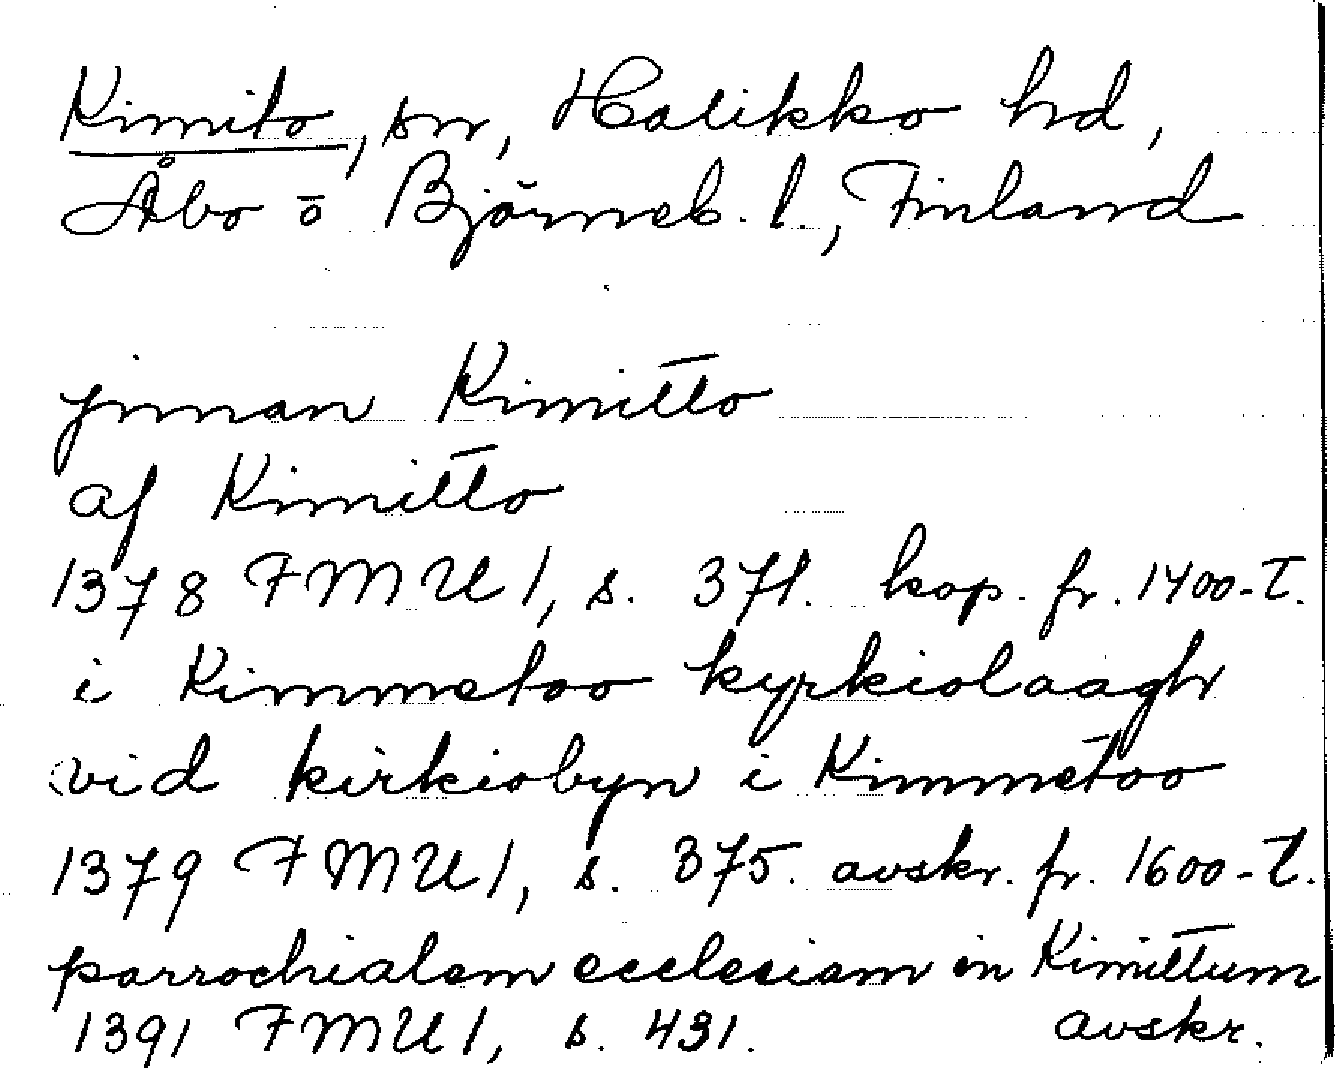 Kimito, sn, Halikko hd,
Åbo o Björneb. l., Finland
jnnan Kimitto
af Kimitto
1378 FMU 1, s. 371. kop. fr. 1400-t.
i Kimmetoo kyrkiolaagh
vid kirkiobyn i Kimmetoo
1379 FMU 1, s. 375. avskr. fr. 1600-t.
parrochialem ecclesiam in Kimittum
1391 FMU 1, s. 431. avskr.